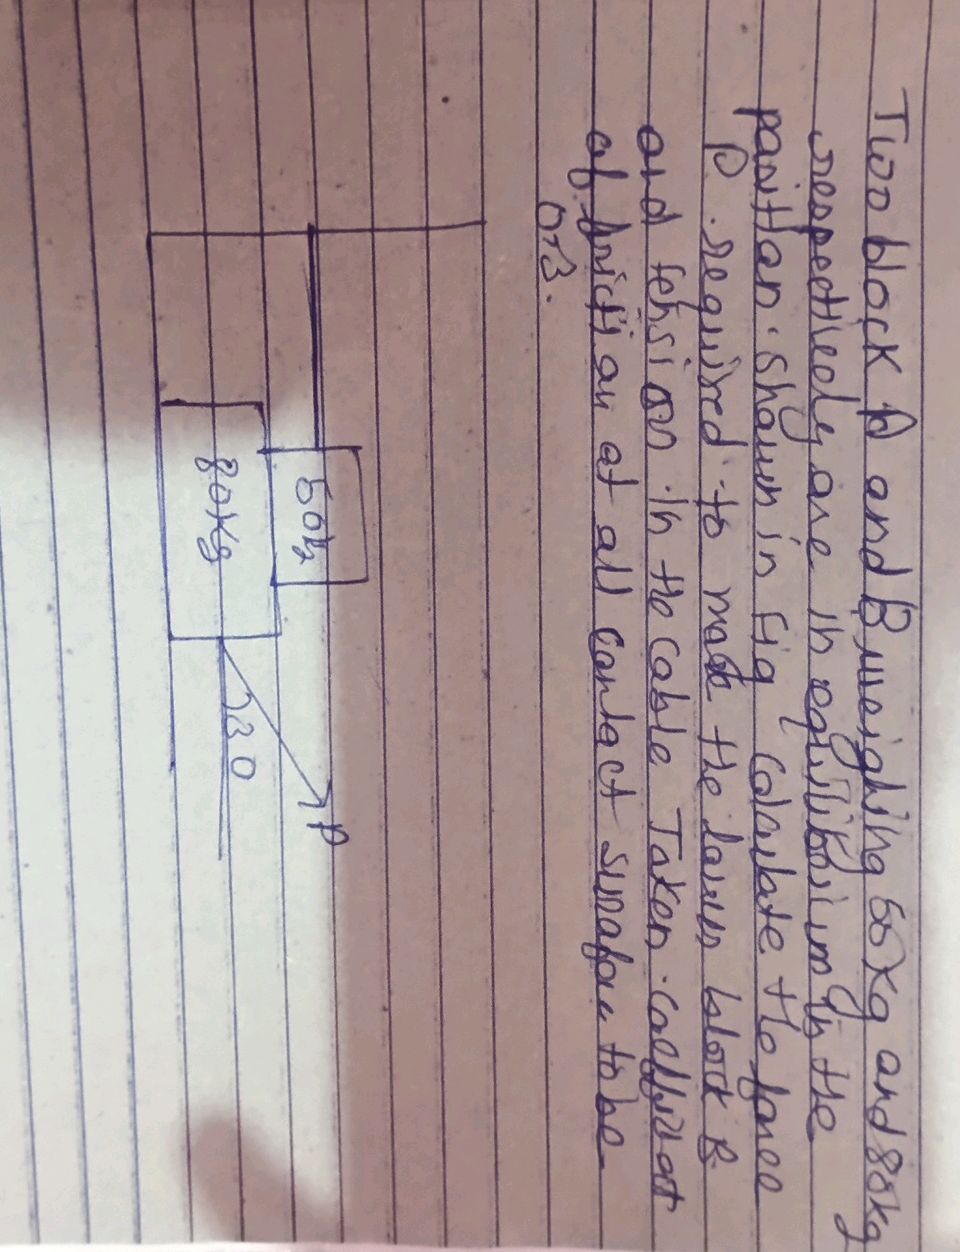 Two block A and B weighing 50Kg and 80kg
respectively are in equilibrium in the
position shown in Fig Calculate the force
P required to move the lower block B
and tension in the cable Taken coefficient
of friction at all contact surface to be
0.3.
50kg
80Kg
30
P